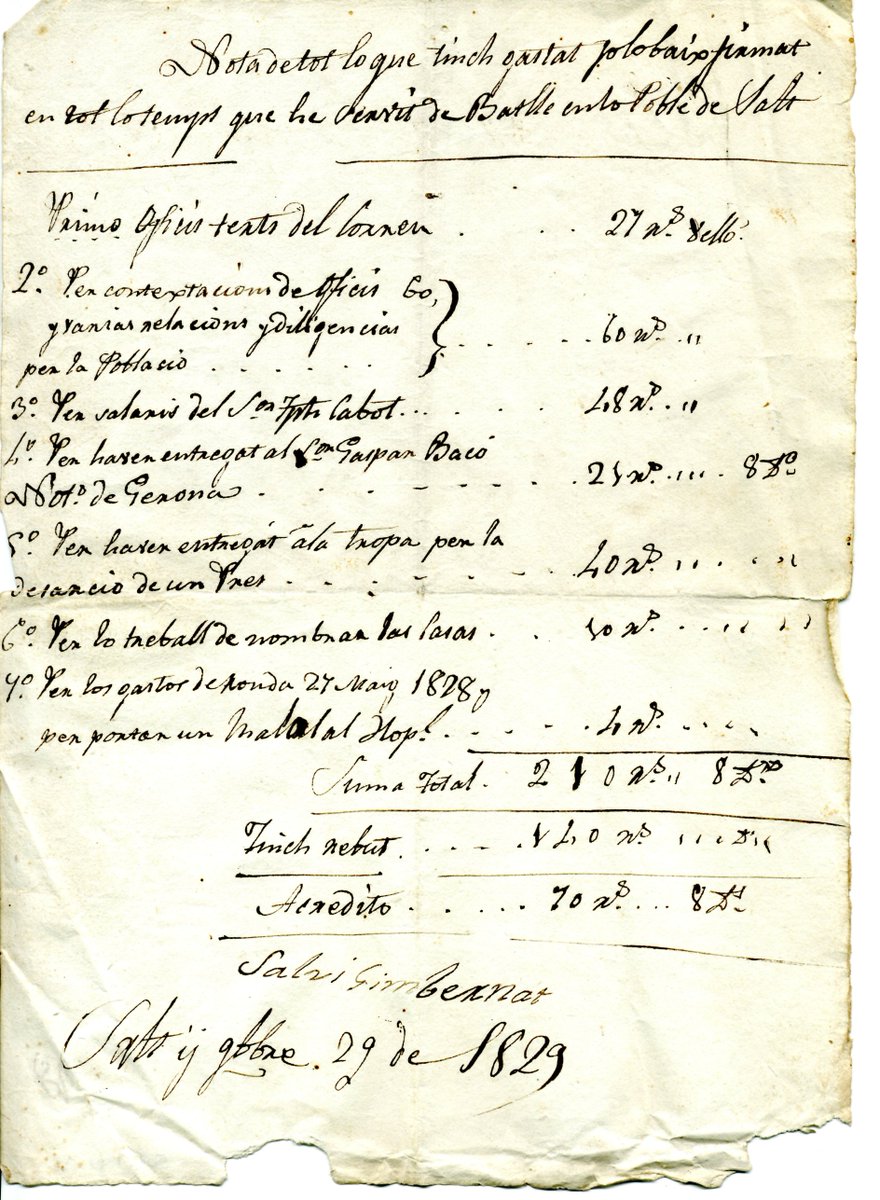 Nota de tot lo que tinch gastat jo lo baix firmat
en tot lo temps que he servit de Batlle en lo Poble de Salt
Primo Oficis tents del Correu . . . . 27 rs. velló.
2º. Per contextacions de Oficis 60,
y varias relacions y diligencias . . . . 60 rs. ,,
per la Poblacio . . . . . .
3º. Per salaris del Sor. Jph. Cabot . . . . . 48 rs. ,,
4º. Per haver entregat al Sor. Gaspar Bacó
Notº. de Gerona . . . . . . . . 21 rs. ,,, . 8 Ds.
5º. Per haver entregát â la tropa per la
de un Pres . . . . . . . 40 rs. ,, . . .
6º. Per lo treball de nombrar las Casas . . . 10 rs. . . ,, ,,
7º. Per los gastos de ronda 27 Maig 1828 y
per portar un Malal al Hopl. . . . . . 4 rs. . . ,,
Suma total . 2 1 0 rs. ,, 8 Ds.
Tinch rebut . . . . 1 4 0 rs. ,,, Ds.
Acredito . . . . . 70 rs. . . . 8 Ds.
Salvi Gimbernat
Salt y 9bbre. 29 de 1829